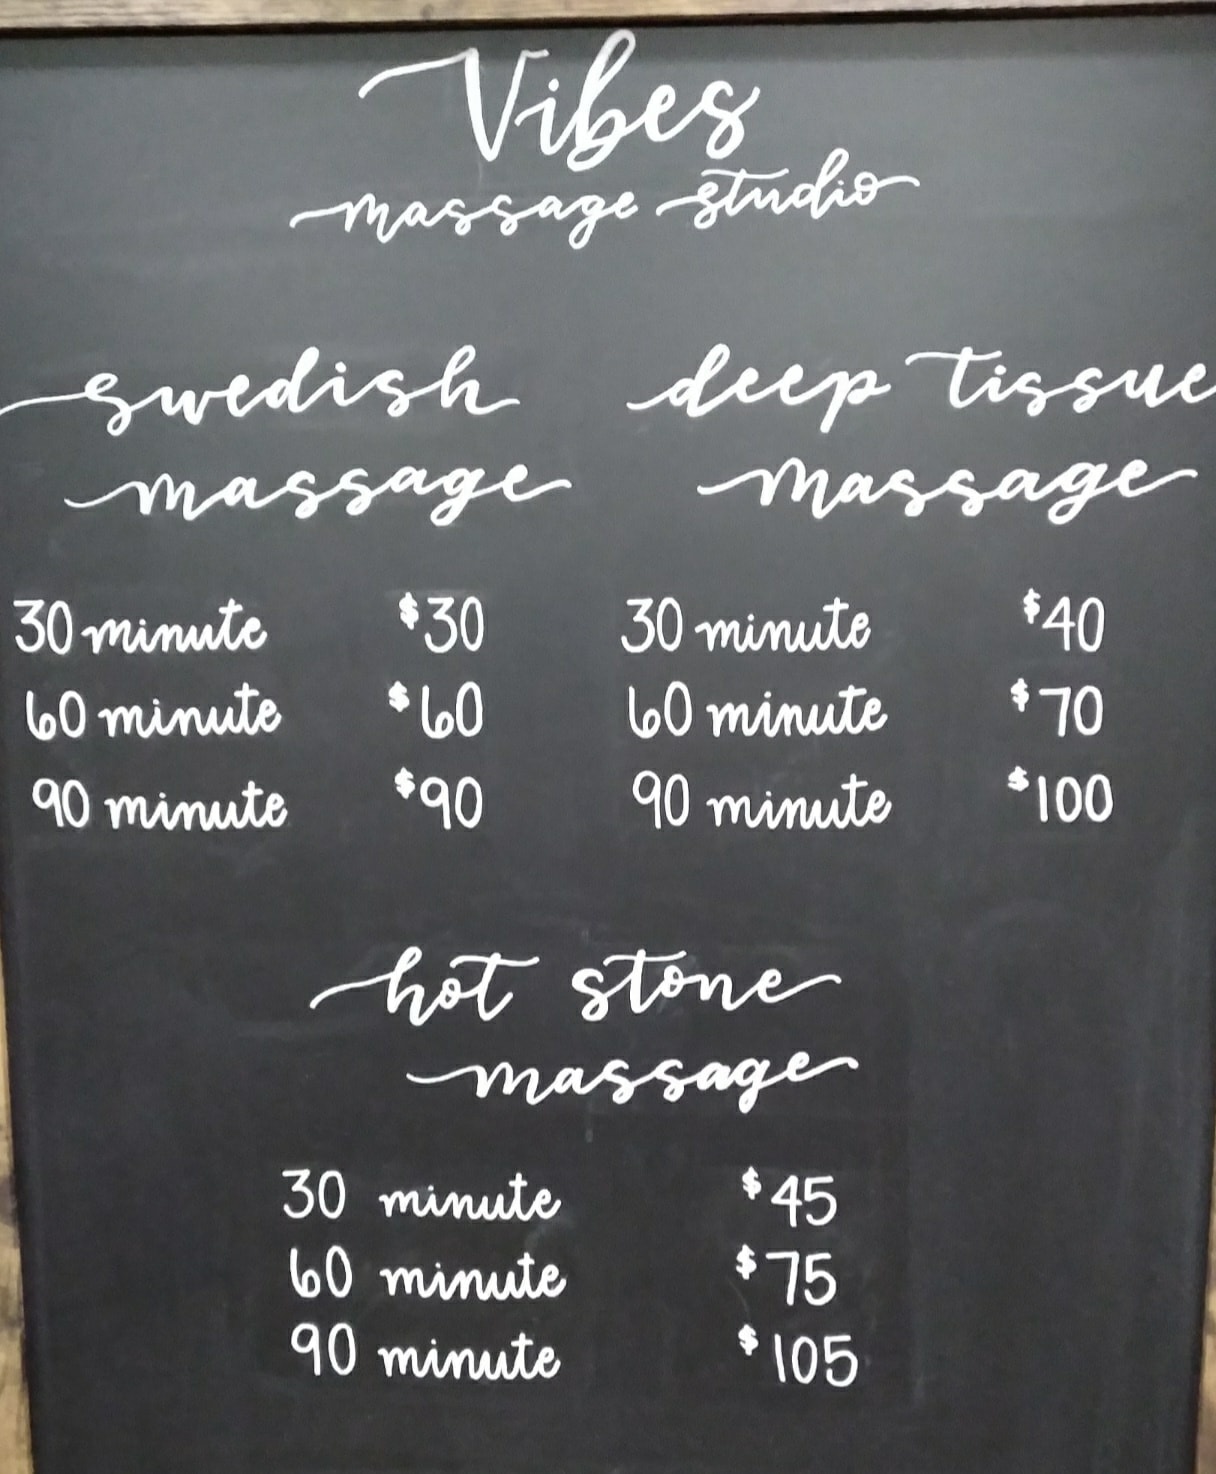 Vibes
massage studio
swedish
massage
30 minute $30
60 minute $60
90 minute $90
deep tissue
massage
30 minute $40
60 minute $70
90 minute $100
hot stone
massage
30 minute $45
60 minute $75
90 minute $105